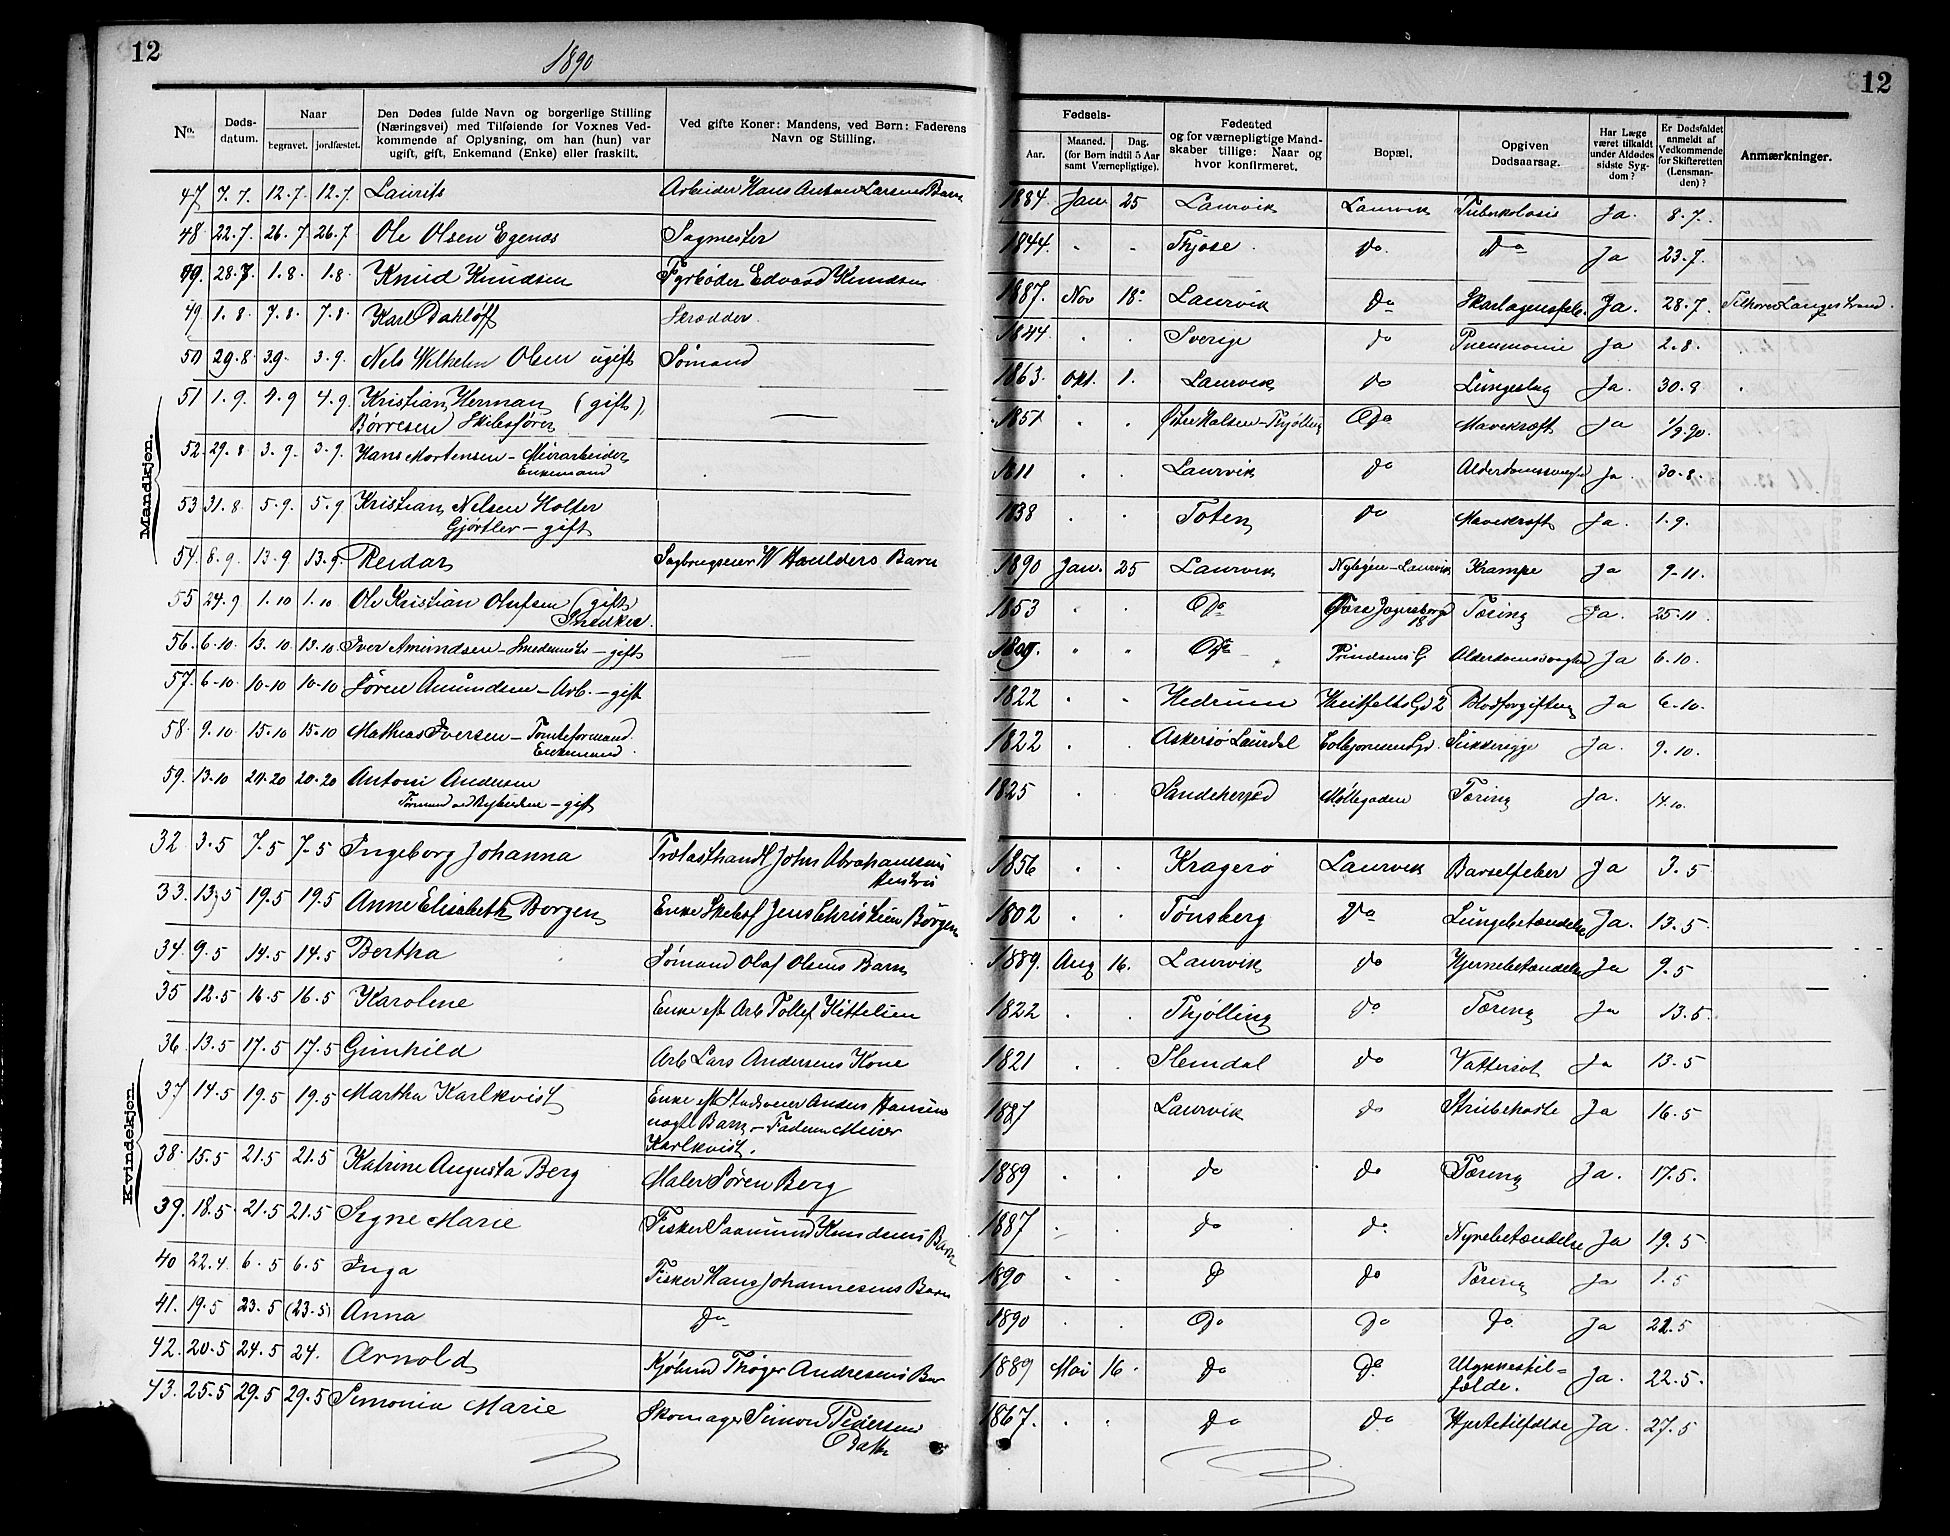 12
1890
12
No.
Døds-
datum.
Naar
begravet.
jordfæstet.
Den Dødes fulde Navn og borgerlige Stilling
(Næringsvei) med Tilføiende for Voxnes Ved-
kommende af Oplysning, om han (hun) var
ugift, gift, Enkemand (Enke) eller fraskilt.
Ved gifte Koner: Mandens, ved Børn: Faderens
Navn og Stilling.
Fødsels-
Aar.
Maaned. Dag.
(for Børn indtil 5 Aar
samt Værnepligtige).
Fødested
og for værnepligtige Mand-
skaber tillige: Naar og
hvor konfirmeret.
Bopæl.
Opgiven
Dødsaarsag.
Har Læge
været tilkaldt
under Afdødes
sidste Syg-
dom?
Er Dødsfaldet
anmeldt af
Vedkommende
for Skifteretten
(Lensman-
den)?
Anmærkninger.
Mandkjøn.
47 7.7. 12.7. 12.7. Laurits Arbeider Hans Anton Larsens Barn 1884. Jan 25 Laurvik Laurvik Tuberkolosis Ja. 8.7.
48 22.7. 26.7 26.7 Ole Olsen Egenæs Sagmester 1844. " " Thjose Do Do Ja 23.7.
49. 28.7. 1.8. 1.8. Knud Knudsen Fyrbøder Edvard Knudsen 1887. Nov 18. Laurvik Do Skarlagensfeb. Ja. 28.7. Tilhører Langestrand.
49 1.8. 7.8. 7.8. Karl Dahløff Skrædder. 1844 . . Sverige do Pneumonie Ja 2.8.
50 29.8. 3.9. 3.9. Nels Wilhelm Olsen ugift Sømand 1863. Okt. 1. Laurvik do Lungeslag Ja. 30.8
51 1.9. 4.9 4.9. Kristian Herman (gift)
Børresen Skibsfører 1851 . . Øster Halsen - Thjølling Do Mavekræft Ja 1/9.90.
52. 29.8 3.9. 3.9. Hans Mortensen - Murarbeider
Enkemand 1811 . . Laurvik do Alderdomssvaghed Ja. 30.8.
53 31.8. 5.9. 5.9 Kristian Nelsen Holter
Gjørtler - gift 1838 . . Toten do Mavekræft Ja. 1.9.
54. 8.9. 13.9. 13.9. Reidar Sagbrugseier W Houlders Barn 1890 Jan. 25 Laurvik - Laurvik Krampe Ja 9-11.
55 24.9 1.10 1.10 Ole Kristian Olufsen (gift)
Snedker. 1853 " " Do Jegersborgd
18 Tæring Ja. 25.11
56. 6.10. 13.10. 13.10 Iver Amundsen - Smedemstr - gift " " Do Prindsens G Alderdomssvaghed Ja 6.10.
57. 6-10. 10-10 10-10 Søren Amundsen - Arb. - gift 1822 " " Hedrum Huitfelts Gd 2 Blodforgiftning Ja 6-10.
58 9.10 15.10 15.10 Mathias Iversen - Tomteformand.
Enkemand. 1822 . . Laurdal Sukkersyge Ja. 9.10.
59. 13.10 20.20 20.20 Antoni Andersen
Formand ved - gift 1825 . . Sandeherred Møllegaden Tæring Ja. 14.10.
Kvindekjøn.
32 3.5 7.5 7.5 Ingeborg Johanna Trælasthandl John Abrahamsens
Hustru 1856 . . Kragerø Laurvik Barselfeber Ja 3.5
33. 13.5 19.5 19.5 Anne Elisabeth Borgen Enke Skibsf Jens Christian Börgen 1802 . . Tønsberg Do Lungebetændelse Ja. 13.5
34. 9.5 14.5 14.5 Bertha Sømand Olaf Olsens Barn 1889. Aug 16. Laurvik do Hjernebetændelse Ja 9.5
35 12.5 16.5 16.5 Karoline Enke eft Arb Tollef Kittelsen 1822 . . Thjølling do Tæring Ja 13.5.
36. 13.5 17.5 17.5 Gunhild Arb Lars Andersens Kone 1821 . . Slemdal do Vattersot Ja 13.5
37 14.5 19.5 19.5 Martha Karlkvist Enke eft Anders Hansens
uægte Barn. - Faderen Murer
Karlkvist. 1887 Laurvik do Strubehoste Ja 16.5
38. 15.5 21.5 21.5 Katrine Augusta Berg Maler Søren Berg 1889 . . do do Tæring Ja. 17.5.
39. 18.5 21.5 21.5 Signe Marie Fisker Saamund Knudsens Barn 1887 . . do do Nyrebetændelse Ja 19.5
40 22.4 6.5 6.5 Inga Fisker Hans Johannesens Barn 1890 . . do do Tæring Ja 1.5
41. 19.5 23.5 (23.5) Anna do 1890 . . Do Do do Ja 21.5
42. 20.5 24.5 24. Arnold Kjøbmd Thøger Andresens Bar 1889 Mai 16. do Do Ulykkestil-
fælde. Ja. 22.5.
43. 25.5 29.5 29.5 Simonia Marie Skomager Simon Pedersens
Datter 1867. . . do do Hjertetilfælde Ja. 27.5